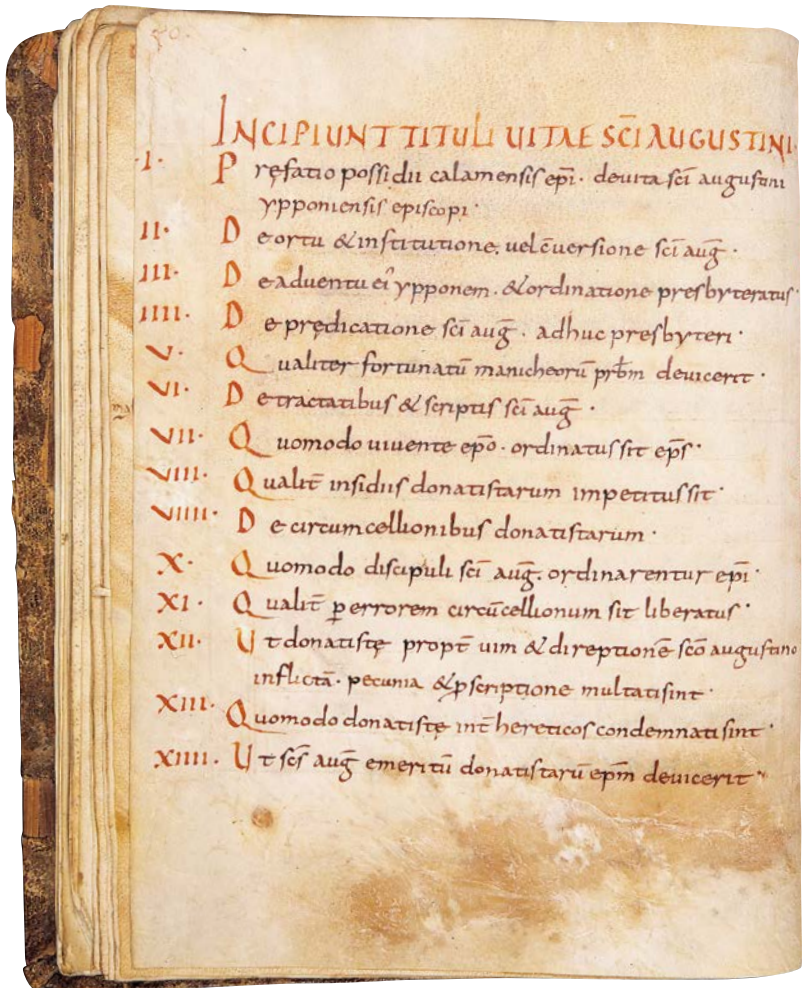 INCIPIUNT TITULI UITAE SC̄I AUGUSTINI·
·I· Pręfatio possidii calamensis ep̄i· deuita sc̄i augustini
ypponiensis episcopi·
II· De ortu & institutione, uel c̄uersione sc̄i auḡ·
III· De aduentu ei᾽ ypponem· & ordinatione presbyteratus·
IIII· De prędicatione sc̄i auḡ· adhuc presbyteri·
V· Qualiter fortunatū manicheorū prb̄m deuicerit·
VI· De tractatibus & scriptis sc̄i auḡ·
VII· Quomodo uiuente ep̄o· ordinatus sit ep̄s·
VIII· Qualit̄ insidiis donatistarum impetitus sit·
VIIII· De circumcellionibus donatistarum·
X· Quomodo discipuli sc̄i auḡ· ordinarentur ep̄i·
XI· Qualit̄ ꝑ errorem circūcellionum sit liberatus·
XII· Ut donatistę propt̄ uim & direptionē sc̄o augustino
inflictā· pecunia & ꝓscriptione multati sint·
XIII· Quomodo donatistę int̄ hereticos condemnati sint·
XIIII· Ut sc̄s auḡ emeritū donatistarū ep̄m deuicerit·